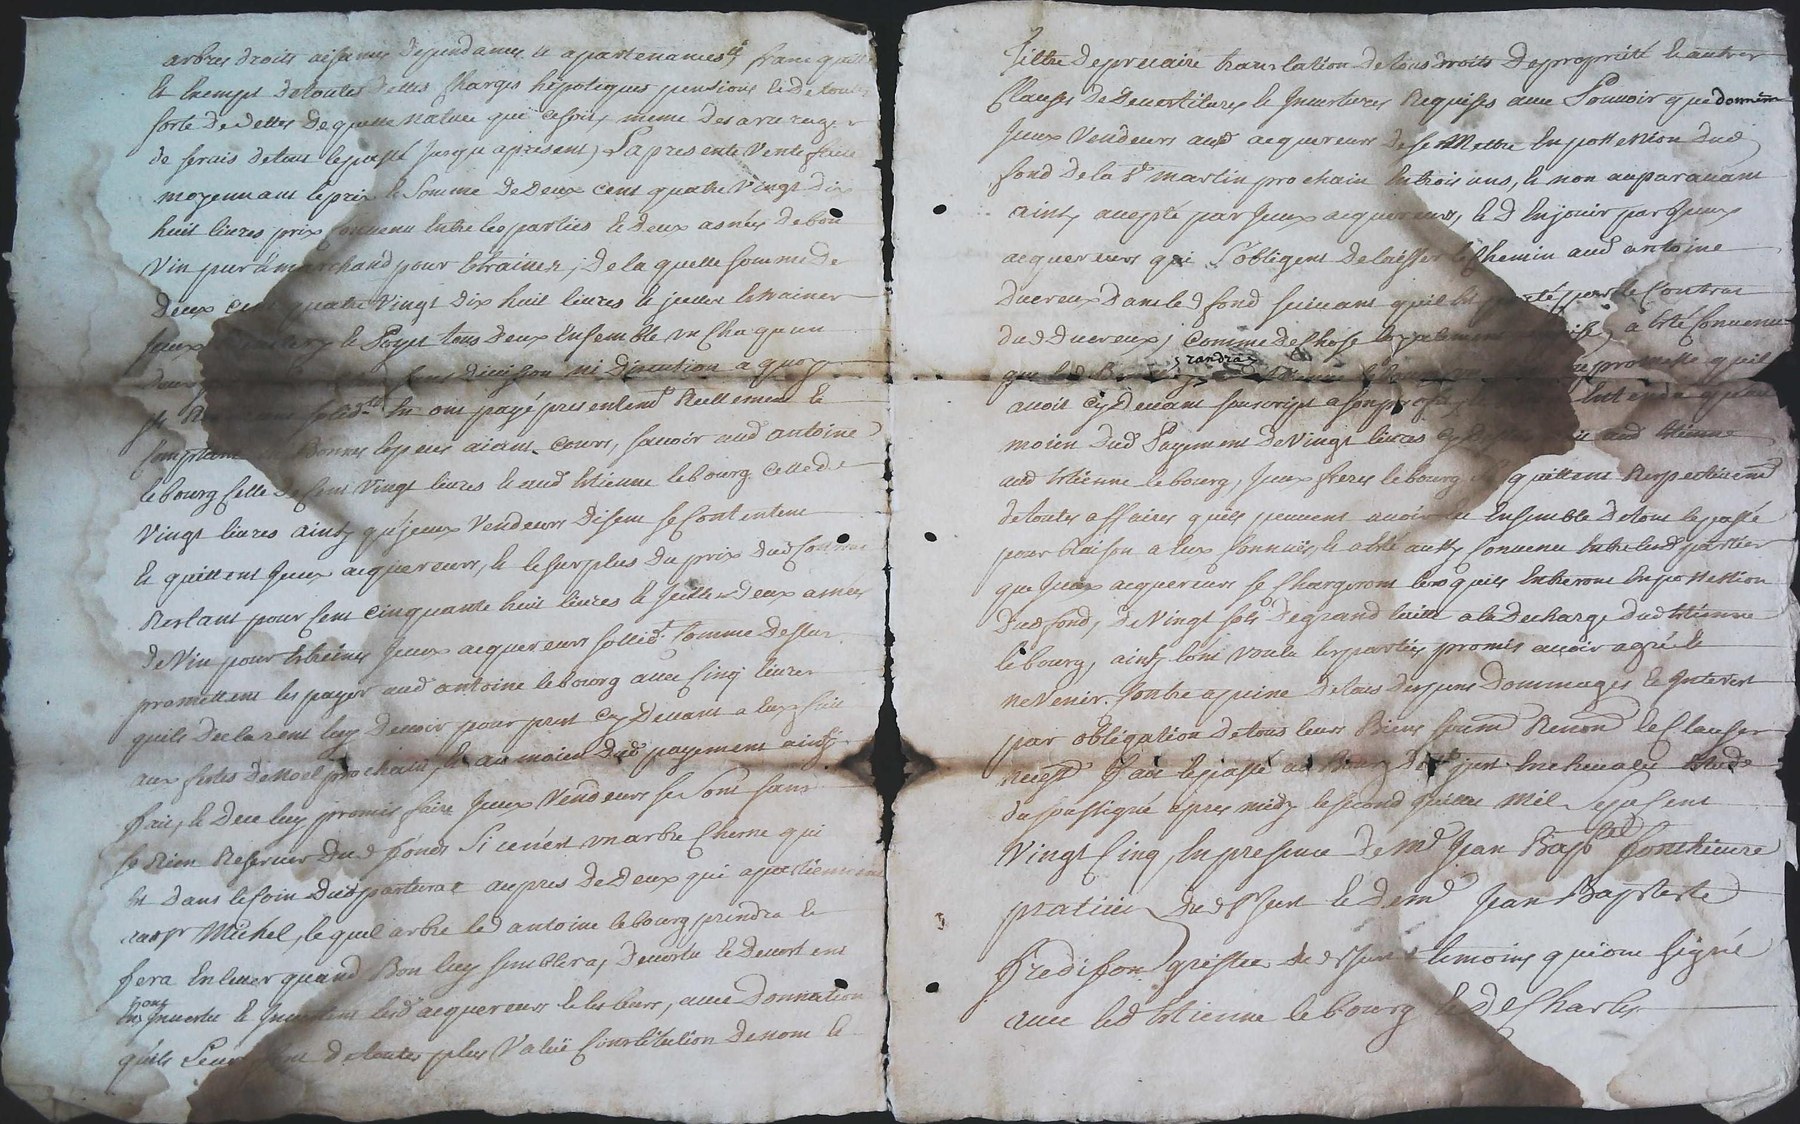 arbres droits aisances dependances & apartenances franc quitte
& exempt de toutes dettes Charges hipoteques pensions & de toutte
sorte de dettes de quelle nature que ce soit, meme des arrerages
de servis de tout le passé jusqu a present, La presente Vente faite
moyennant le prix & Somme de Deux cent quatre Vingt dix
huit livres prix convenu entre les parties & deux asnées de bon
Vin pur & marchand pour Etraines; de la quelle somme de
Deux cent quatre Vingt Dix huit livres & jceux Etraines
jceux & Payet tous deux Ensemble un Chaqu un
deux sans division ni Discution a quoy
solid.rt En ont payé presentem.t Reellement &
Comptant Bonnes Especes aiant cours, scavoir aud antoine
lebourg celle de Cent Vingt livres & aud Etienne lebourg celle de
Vingt livres ainsy qu'jceux Vendeurs Disent se Contentent
& quittent jceux acquereurs, & le surplus du prix dud
Restant pour Cent cinquante huit livres & deux asnées
de Vin pour Etreines jceux acquereurs sollid.t Comme Dessus
promettent les payer aud antoine lebourg avec Cinq livres
quils declarent luy devoir pour pret Cy Devant a Eux fait
aux fetes de Noel prochain, & au moien dud payement ainsy
fait, & De luy promis faire jceux Vendeurs se Sont sans
se Rien Reserver Dud fonds Si ce n'est un arbre Chene qui
Est Dans le Coin dud pasturat aupres de Deux qui apartiennent
Michel, le quel arbre led antoine lebourg prendra &
fera Enlever quand Bon luy semblera, Devetu & Devetent
ont
Investu & Investent lesd acquereurs & les leurs, avec Donnation
quils Leur font de toutes plus Valüe Constitution De nom &
Tiltre De precaire translation De tous droits De proprieté & autres
Clauses De Devestitures & Investitures Requises avec Pouvoir que donnent
jceux Vendeurs aud acquereurs de se Mettre En possession dud
fond de la St martin prochain En trois ans, & non auparavant
ainsy accepté par jceux acquereurs, & d En jouir par jceux
acquereurs qui S'obligent De laisser le Chemin aud antoine
Ducreux Dans led fond suivant quil Est porté par le Contrat
dud Ducreux; Comme De Chose Egalement a Eté Convenu
randra
que led promesse quil
avoit Cy Devant souscript a son profit Entendu qu au
moien dud Payement De Vingt livres Cy Dessus fait aud Etienne
aud Etienne lebourg, jceux freres lebourg se quittent Respectivem.t
De toutes affaires quils peuvent avoir Eu Ensemble De tout le passé
pour Raison a Eux Connües, & a Eté aussy Convenu Entre lesd parties
que jceux acquereurs se Chargeront lors quils Entreront En possession
Dud fond, de Vingt sols De grand Cuitte a la Decharge Dud Etienne
lebourg, ainsy l'ont voulu les parties promis avoir agré &
ne Venir Contre a peine De tous Depens Dommages & Interest
par obligation De tous leurs Biens soum Renon.d & Clauses
necess.s fait & passé au Bourg De St just En chevalet Etude
du soussigné apres midy le second juillet Mil Sept Cent
Vingt Cinq, En presence de M.d Jean Bap.te fonthieure
praticien dud St just & de m.d Jean Baptiste
fredifon greffier dud St just temoins qui ont signé
avec led Etienne lebourg & led Charles